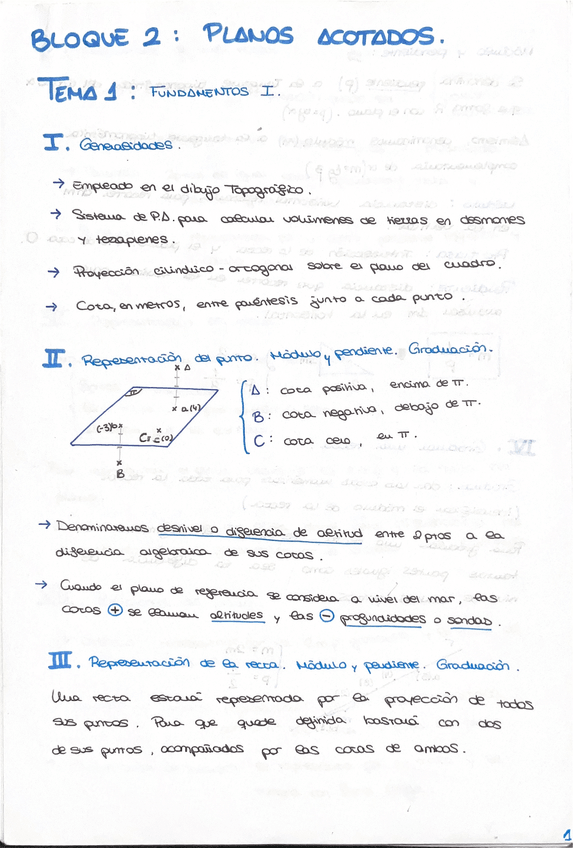 BLOQUE 2 : PLANOS ACOTADOS.
TEMA 1 : FUNDAMENTOS I.
I. Generalidades.
→ Empleado en el dibujo Topográfico.
→ Sistema de P.A. para calcular volúmenes de tierras en desmontes
y terraplenes.
→ Proyección cilíndrico-ortogonal sobre el plano del cuadro.
→ Cota, en metros, entre paréntesis junto a cada punto.
II. Representación del punto. Módulo y pendiente. Graduación.
A
π
a(4)
(-3)b
C≡c(0)
B
A : cota positiva, encima de π.
B : cota negativa, debajo de π.
C : cota cero, en π.
→ Denominaremos desnivel o diferencia de altitud entre 2 ptos a la
diferencia algebraica de sus cotas.
→ Cuando el plano de referencia se considera a nivel del mar, las
cotas ⊕ se llaman altitudes y las ⊖ profundidades o sondas.
III. Representación de la recta. Módulo y pendiente. Graduación.
Una recta estará representada por la proyección de todos
sus puntos. Para que quede definida bastará con dos
de sus puntos, acompañados por las cotas de ambos.
1